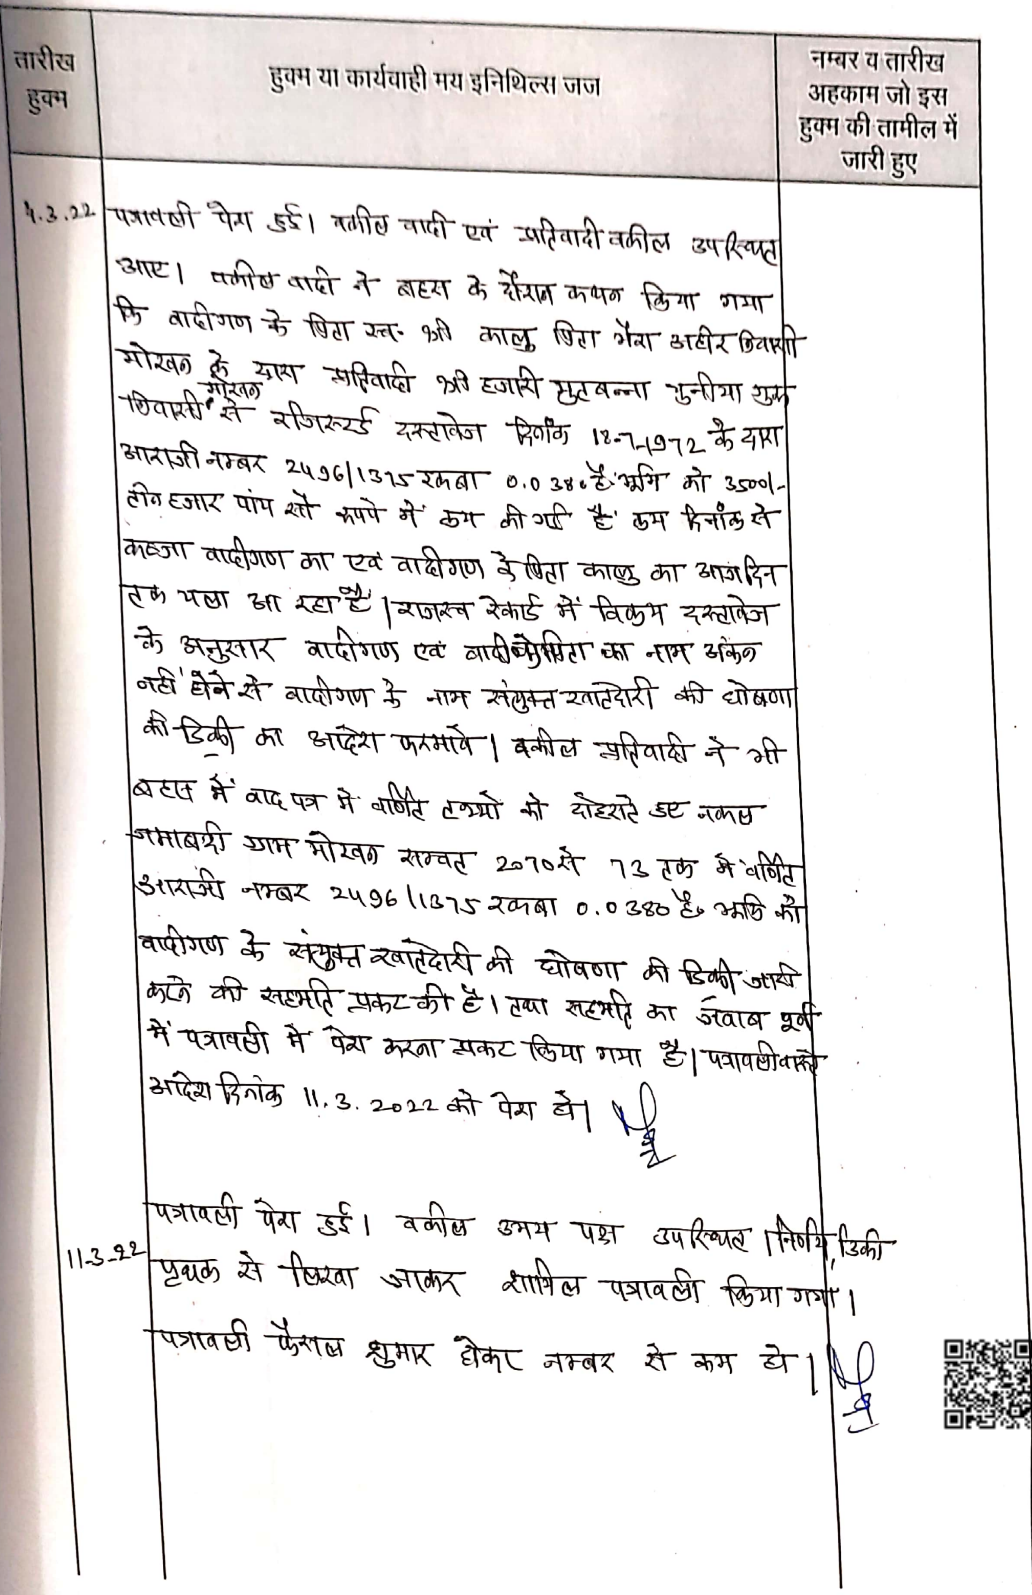 तारीख
हुक्म
हुक्म या कार्यवाही मय इनिथिल्स जज
नम्बर व तारीख
अहकाम जो इस
हुक्म की तामील में
जारी हुए
4.3.22 पत्रावली पेश हुई। वकील वादी एवं प्रतिवादी वकील उपस्थित
आए। वकील वादी ने बहस के दौरान कथन किया गया
कि वादीगण के पिता स्व. श्री कालु पिता भैरा अहीर निवासी
मोखन के द्वारा प्रतिवादी श्री हजारी मुतबन्ना चुनीया
मोखन
निवासी से रजिस्टर्ड दस्तावेज दिनांक 18-7-1972 के द्वारा
आराजी नम्बर 2496/1375 रकबा 0.0380 है. भूमि को 3500/-
तीन हजार पांच सौ रूपये में क्रय की गई है क्रय दिनांक से
कब्जा वादीगण का एवं वादीगण के पिता कालु का आज दिन
तक चला आ रहा है। राजस्व रेकार्ड में विक्रय दस्तावेज
के अनुसार वादीगण एवं वादी के पिता का नाम अंकन
नहीं होने से वादीगण के नाम संयुक्त खातेदारी की घोषणा
की डिक्री का आदेश फरमावे। वकील प्रतिवादी ने भी
बहस में वाद पत्र में वर्णित तथ्यों को दोहराते हुए नकल
जमाबंदी ग्राम मोखन सम्वत 2070 से 73 तक में वर्णित
आराजी नम्बर 2496/1375 रकबा 0.0380 है. भूमि को
वादीगण के संयुक्त खातेदारी की घोषणा की डिक्री जारी
करने की सहमति प्रकट की है। तथा सहमति का जवाब पूर्व
में पत्रावली में पेश करना प्रकट किया गया है। पत्रावली वास्ते
आदेश दिनांक 11.3.2022 को पेश हो।
पत्रावली पेश हुई। वकील उभय पक्ष उपस्थित। निर्णय, डिक्री
11-3-22 पृथक से लिखा जाकर शामिल पत्रावली किया गया।
पत्रावली फैसल शुमार होकर नम्बर से कम हो।